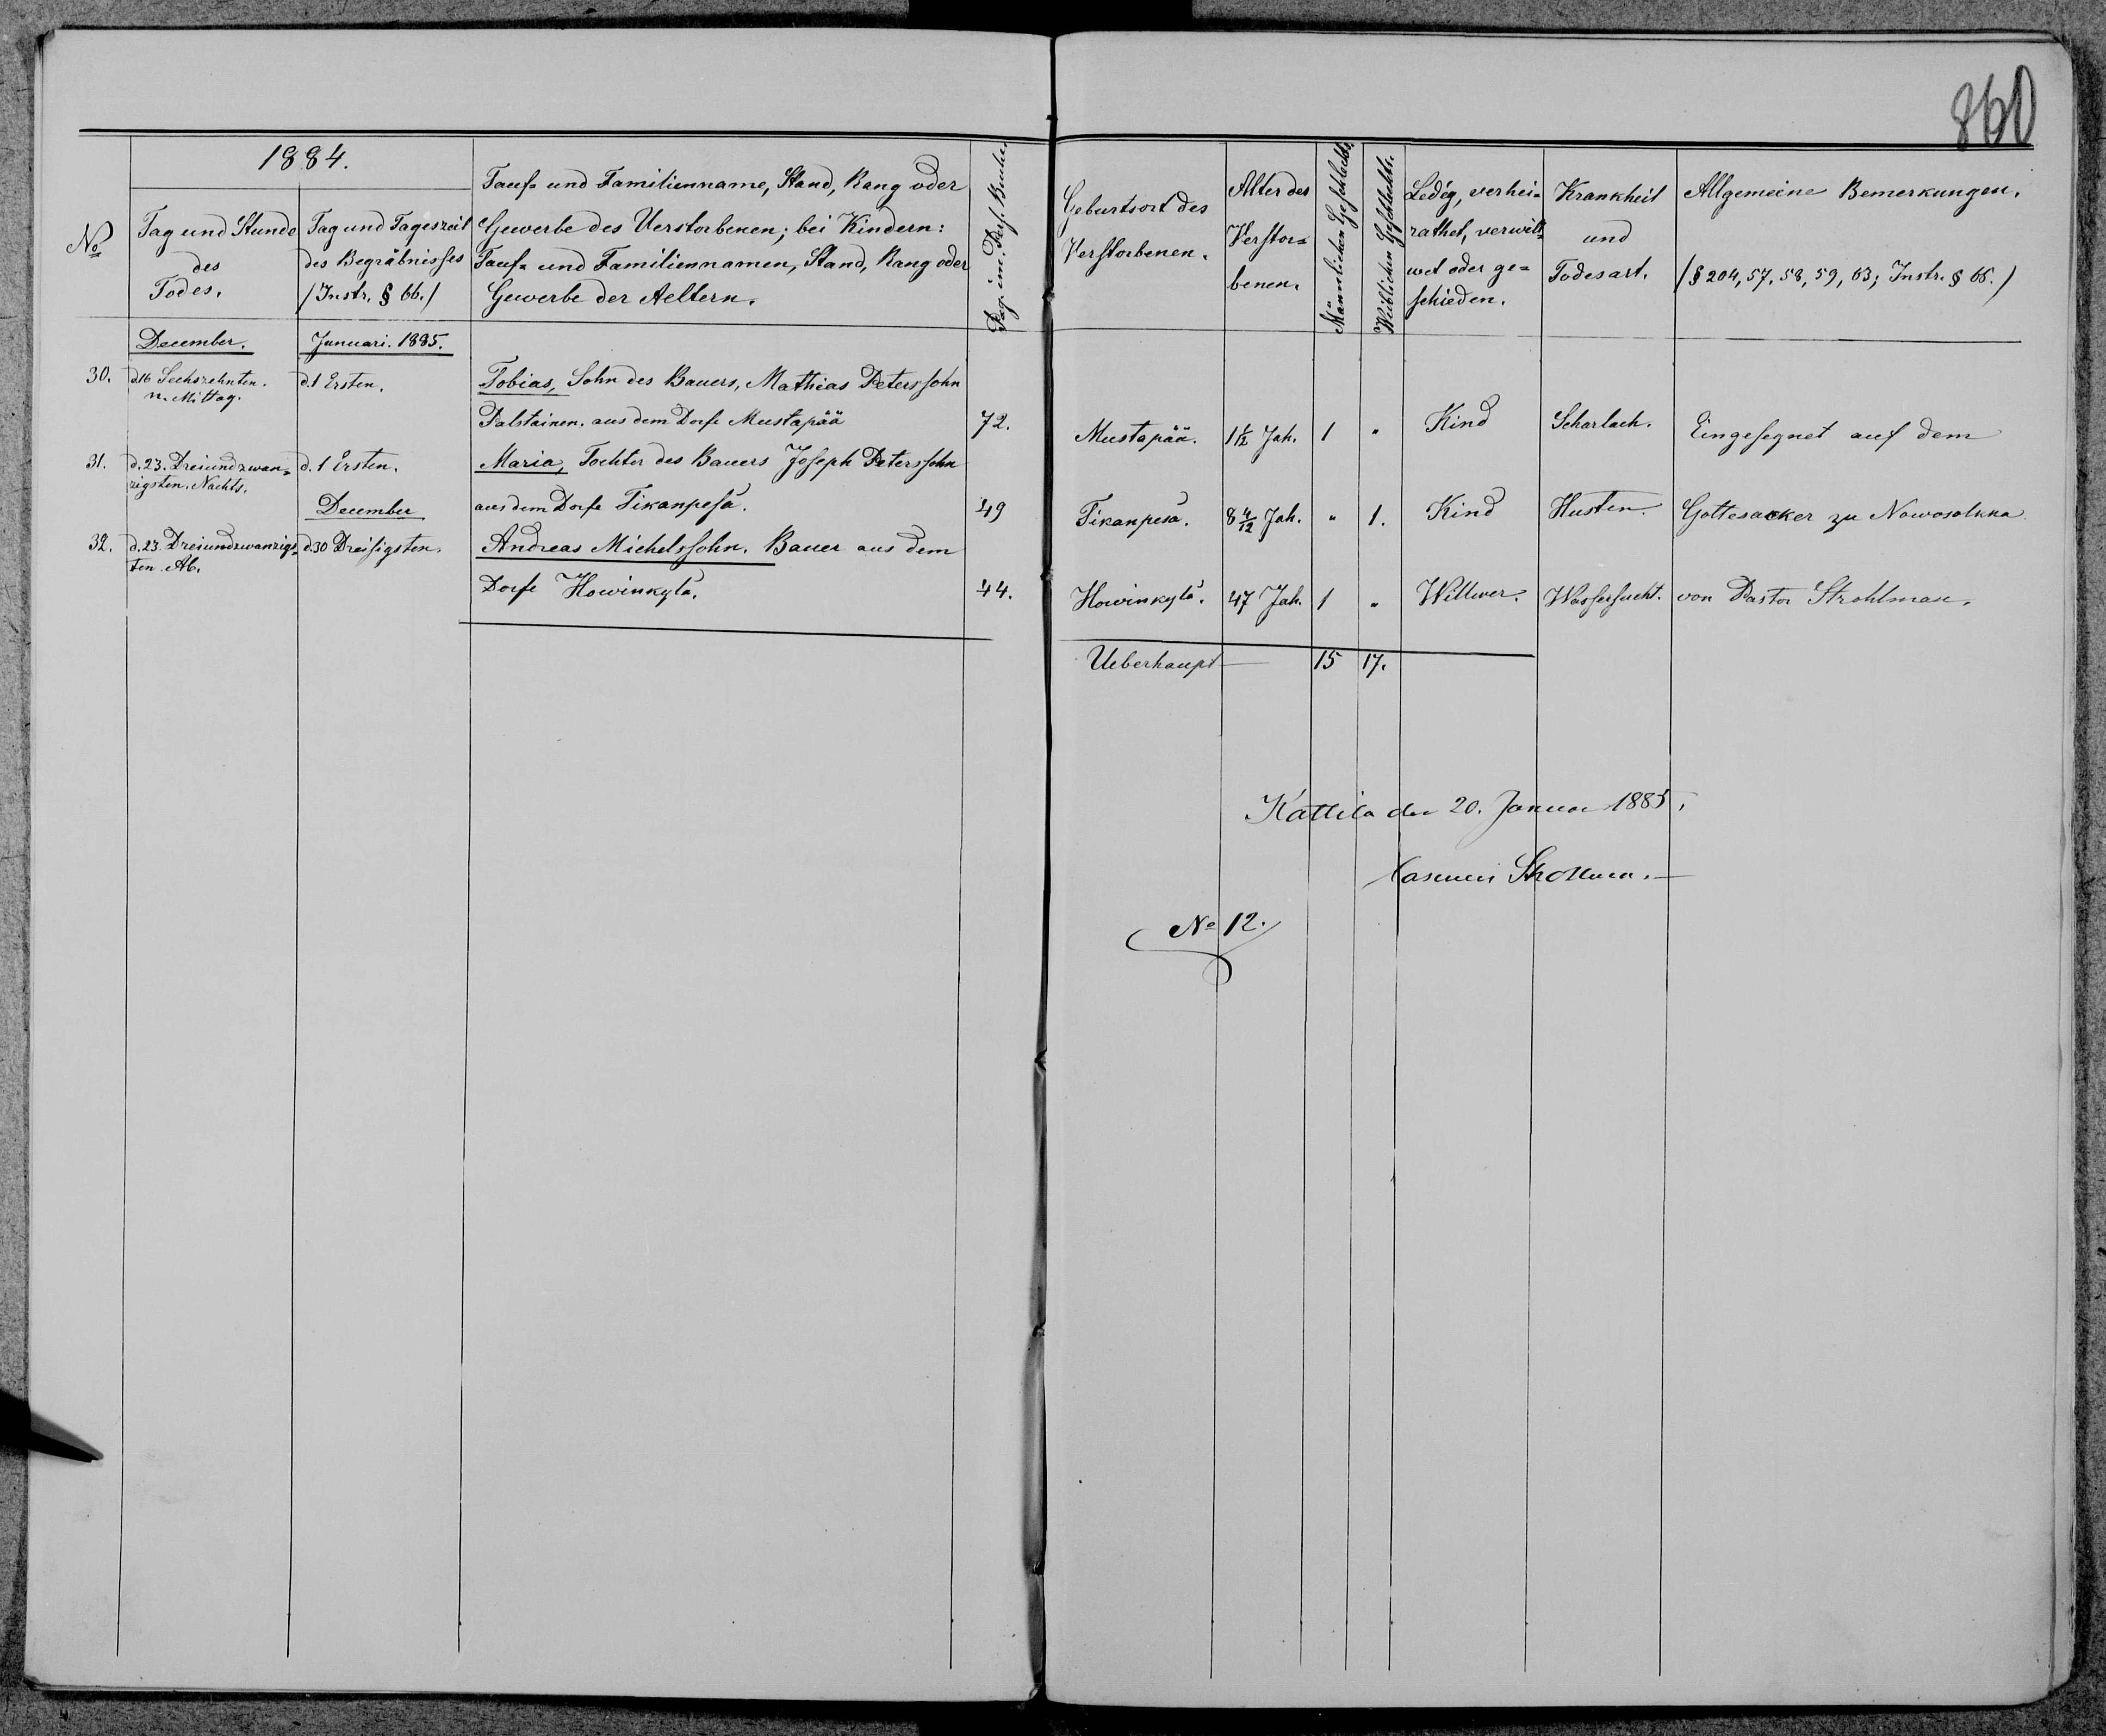 860
1884.
No
Tag und Stunde
des
Todes.
Tag und Tageszeit
des Begräbnisses
/Instr. § 66./
Tauf- und Familienname, Stand, Rang oder
Gewerbe des Verstorbenen; bei Kindern:
Tauf- und Familiennamen, Stand, Rang oder
Gewerbe der Aeltern.
Pag. im. Pers. Buche.
Geburtsort des
Verstorbenen.
Alter des
Verstor-
benen.
Männlichen Geschlechts.
Weiblichen Geschlechts.
Ledig, verhei-
rathet, verwitt-
wet oder ge-
schieden.
Krankheit
und
Todesart.
Allgemeine Bemerkungen.
/§ 204, 57, 58, 59, 63; Instr. § 66./
December.
Januari. 1885.
30.
d.16 Sechszehnten.
n. Mittag.
d.1 Ersten.
Tobias, Sohn des Bauers, Mathias Peterssohn
Palstainen. aus dem Dorfe Mustapää
72.
Mustapää.
1 1/12 Jah.
1
"
Kind
Scharlach.
Eingesegnet auf dem
31.
d. 23. Dreiundzwan-
zigsten. Nachts.
d. 1 Ersten.
Maria, Tochter des Bauers Joseph Peterssohn
aus dem Dorfe Tikanpesä.
49
Tikanpesä.
8 4/12 Jah.
"
1.
Kind
Husten.
Gottesacker zu Nowosolkka
December
32.
d. 23. Dreiundzwanzigs-
ten. Ab.
d.30 Dreisigsten.
Andreas Michelssohn. Bauer aus dem
Dorfe Howinkylä.
44.
Howinkylä.
47 Jah.
1
"
Wittwer.
Wassersucht.
von Pastor Strohlman.
Ueberhaupt
15
17.
Kattila den 20. Januar 1885.
No 12.